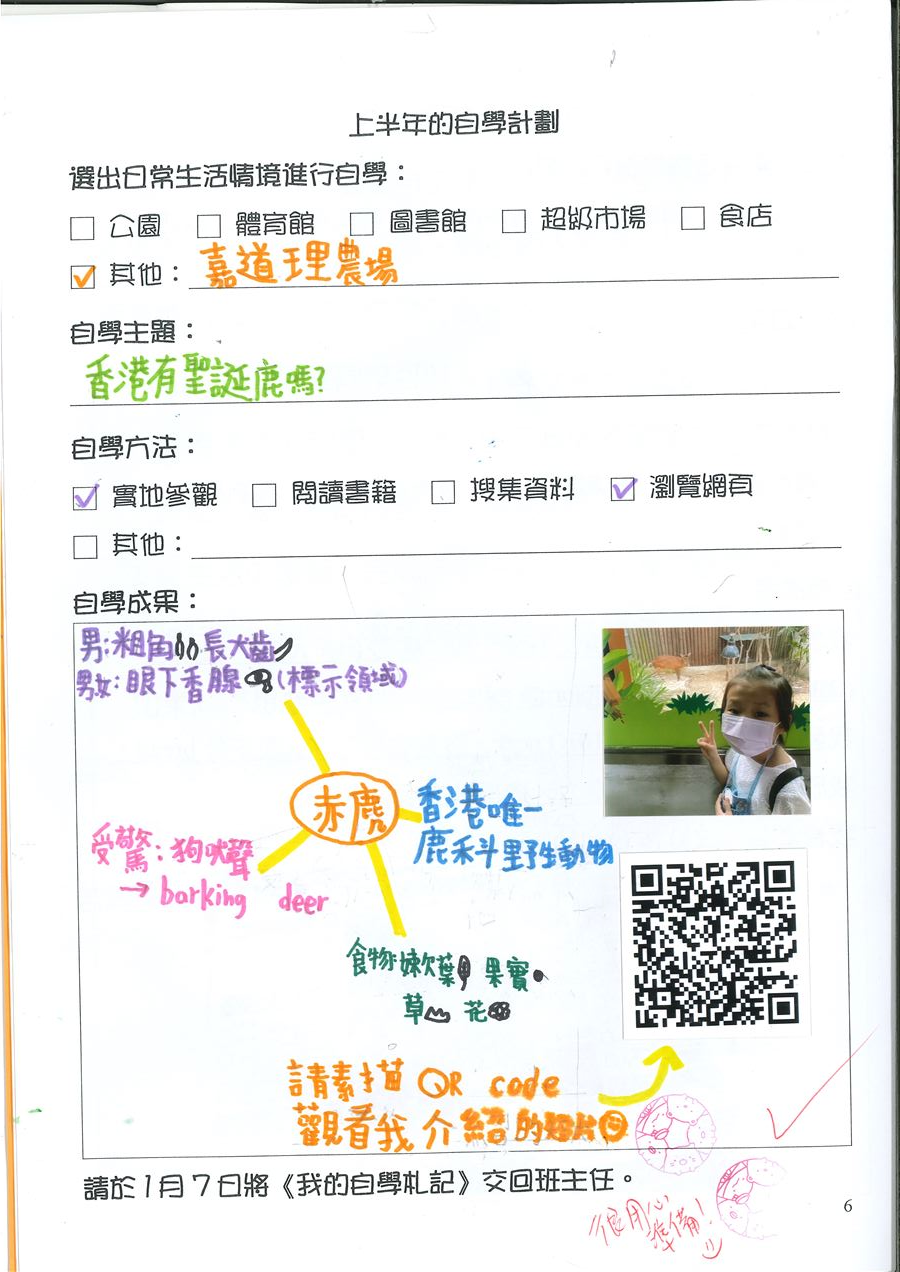 上半年的自學計劃
選出日常生活情境進行自學：
公園 體育館 圖書館 超級市場 食店
其他：嘉道理農場
自學主題：
香港有聖誕鹿嗎?
自學方法：
實地參觀 閱讀書籍 搜集資料 瀏覽網頁
其他：
自學成果：
男:粗角 長大齒
男女:眼下香腺 (標示領域)
赤鹿
香港唯一
鹿科野生動物
受驚:狗吠聲
→ barking deer
食物:嫩葉 果實
草 花
請素描 QR code
觀看我介紹的短片
請於1月7日將《我的自學札記》交回班主任。
很用心
準備!
6